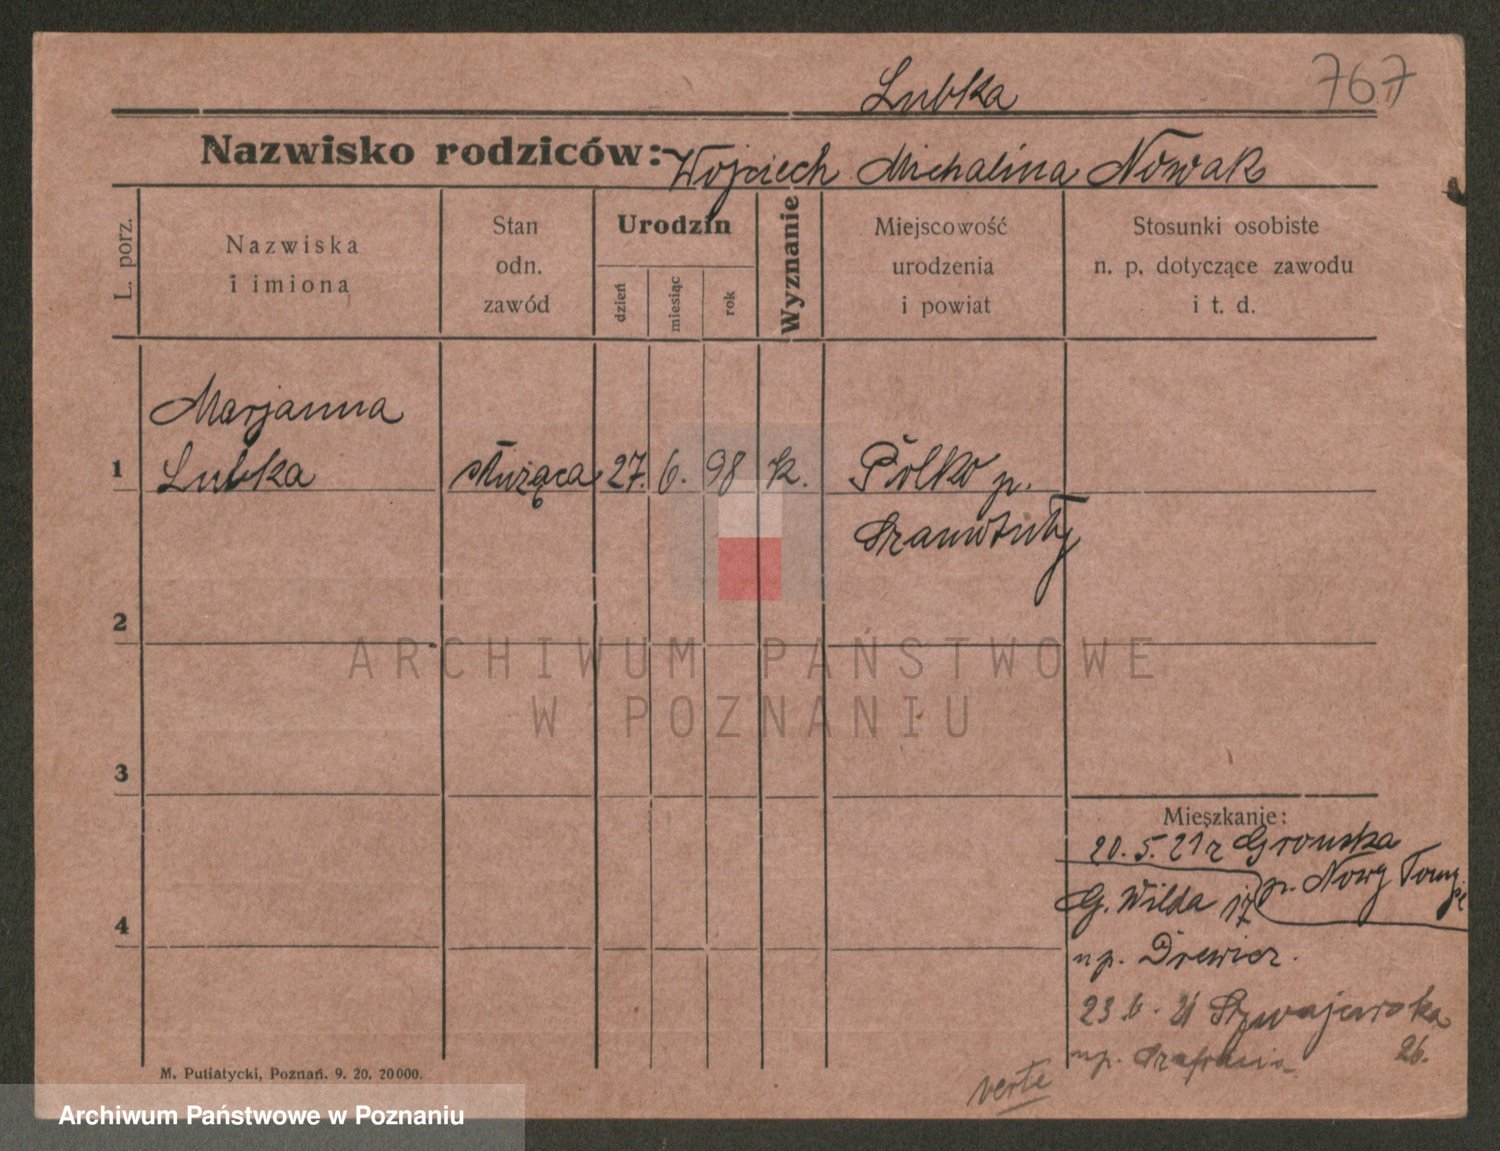 Lubka 767
Nazwisko rodziców: Wojciech Michalina Nowak
L. porz.
Nazwiska
i imiona
Stan
odn.
zawód
Urodzin
dzień
miesiąc
rok
Wyznanie
Miejscowość
urodzenia
i powiat
Stosunki osobiste
n. p. dotyczące zawodu
i t. d.
Marjanna
1 Lubka służąca 27. 6. 98 k. Pólko p.
Szamotuły
2
ARCHIWUM PAŃSTWOWE
W POZNANIU
3
Mieszkanie:
20. 5. 21 z Gronska
p. Nowy Tomy
4 G. Wilda 17
np. Drewicz.
23 6. 21 Szwajcarska
np. 26.
verte
M. Putiatycki, Poznań. 9. 20. 20000.
Archiwum Państwowe w Poznaniu